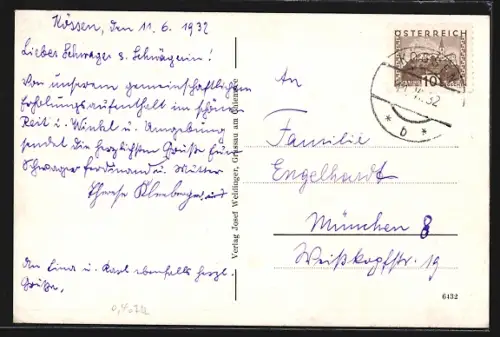 Kössen, den 11.6.1932
Lieber Schwager u. Schwägerin!
Von unserem gemeinschaftlichen
Erholungsaufenthalt im schönen
Reit i. Winkel u. Umgebung
sendet die herzlichsten Grüße Euer
Schwager Ferdinand u. Mutter
Therese
An Lina u. Karl ebenfalls herzl.
Grüße,
Verlag Josef Weidinger, Grassau am Chiemsee
ÖSTERREICH
10
32
* b *
An
Familie
Engelhardt
München 8
Weißkopfstr. 19
6132